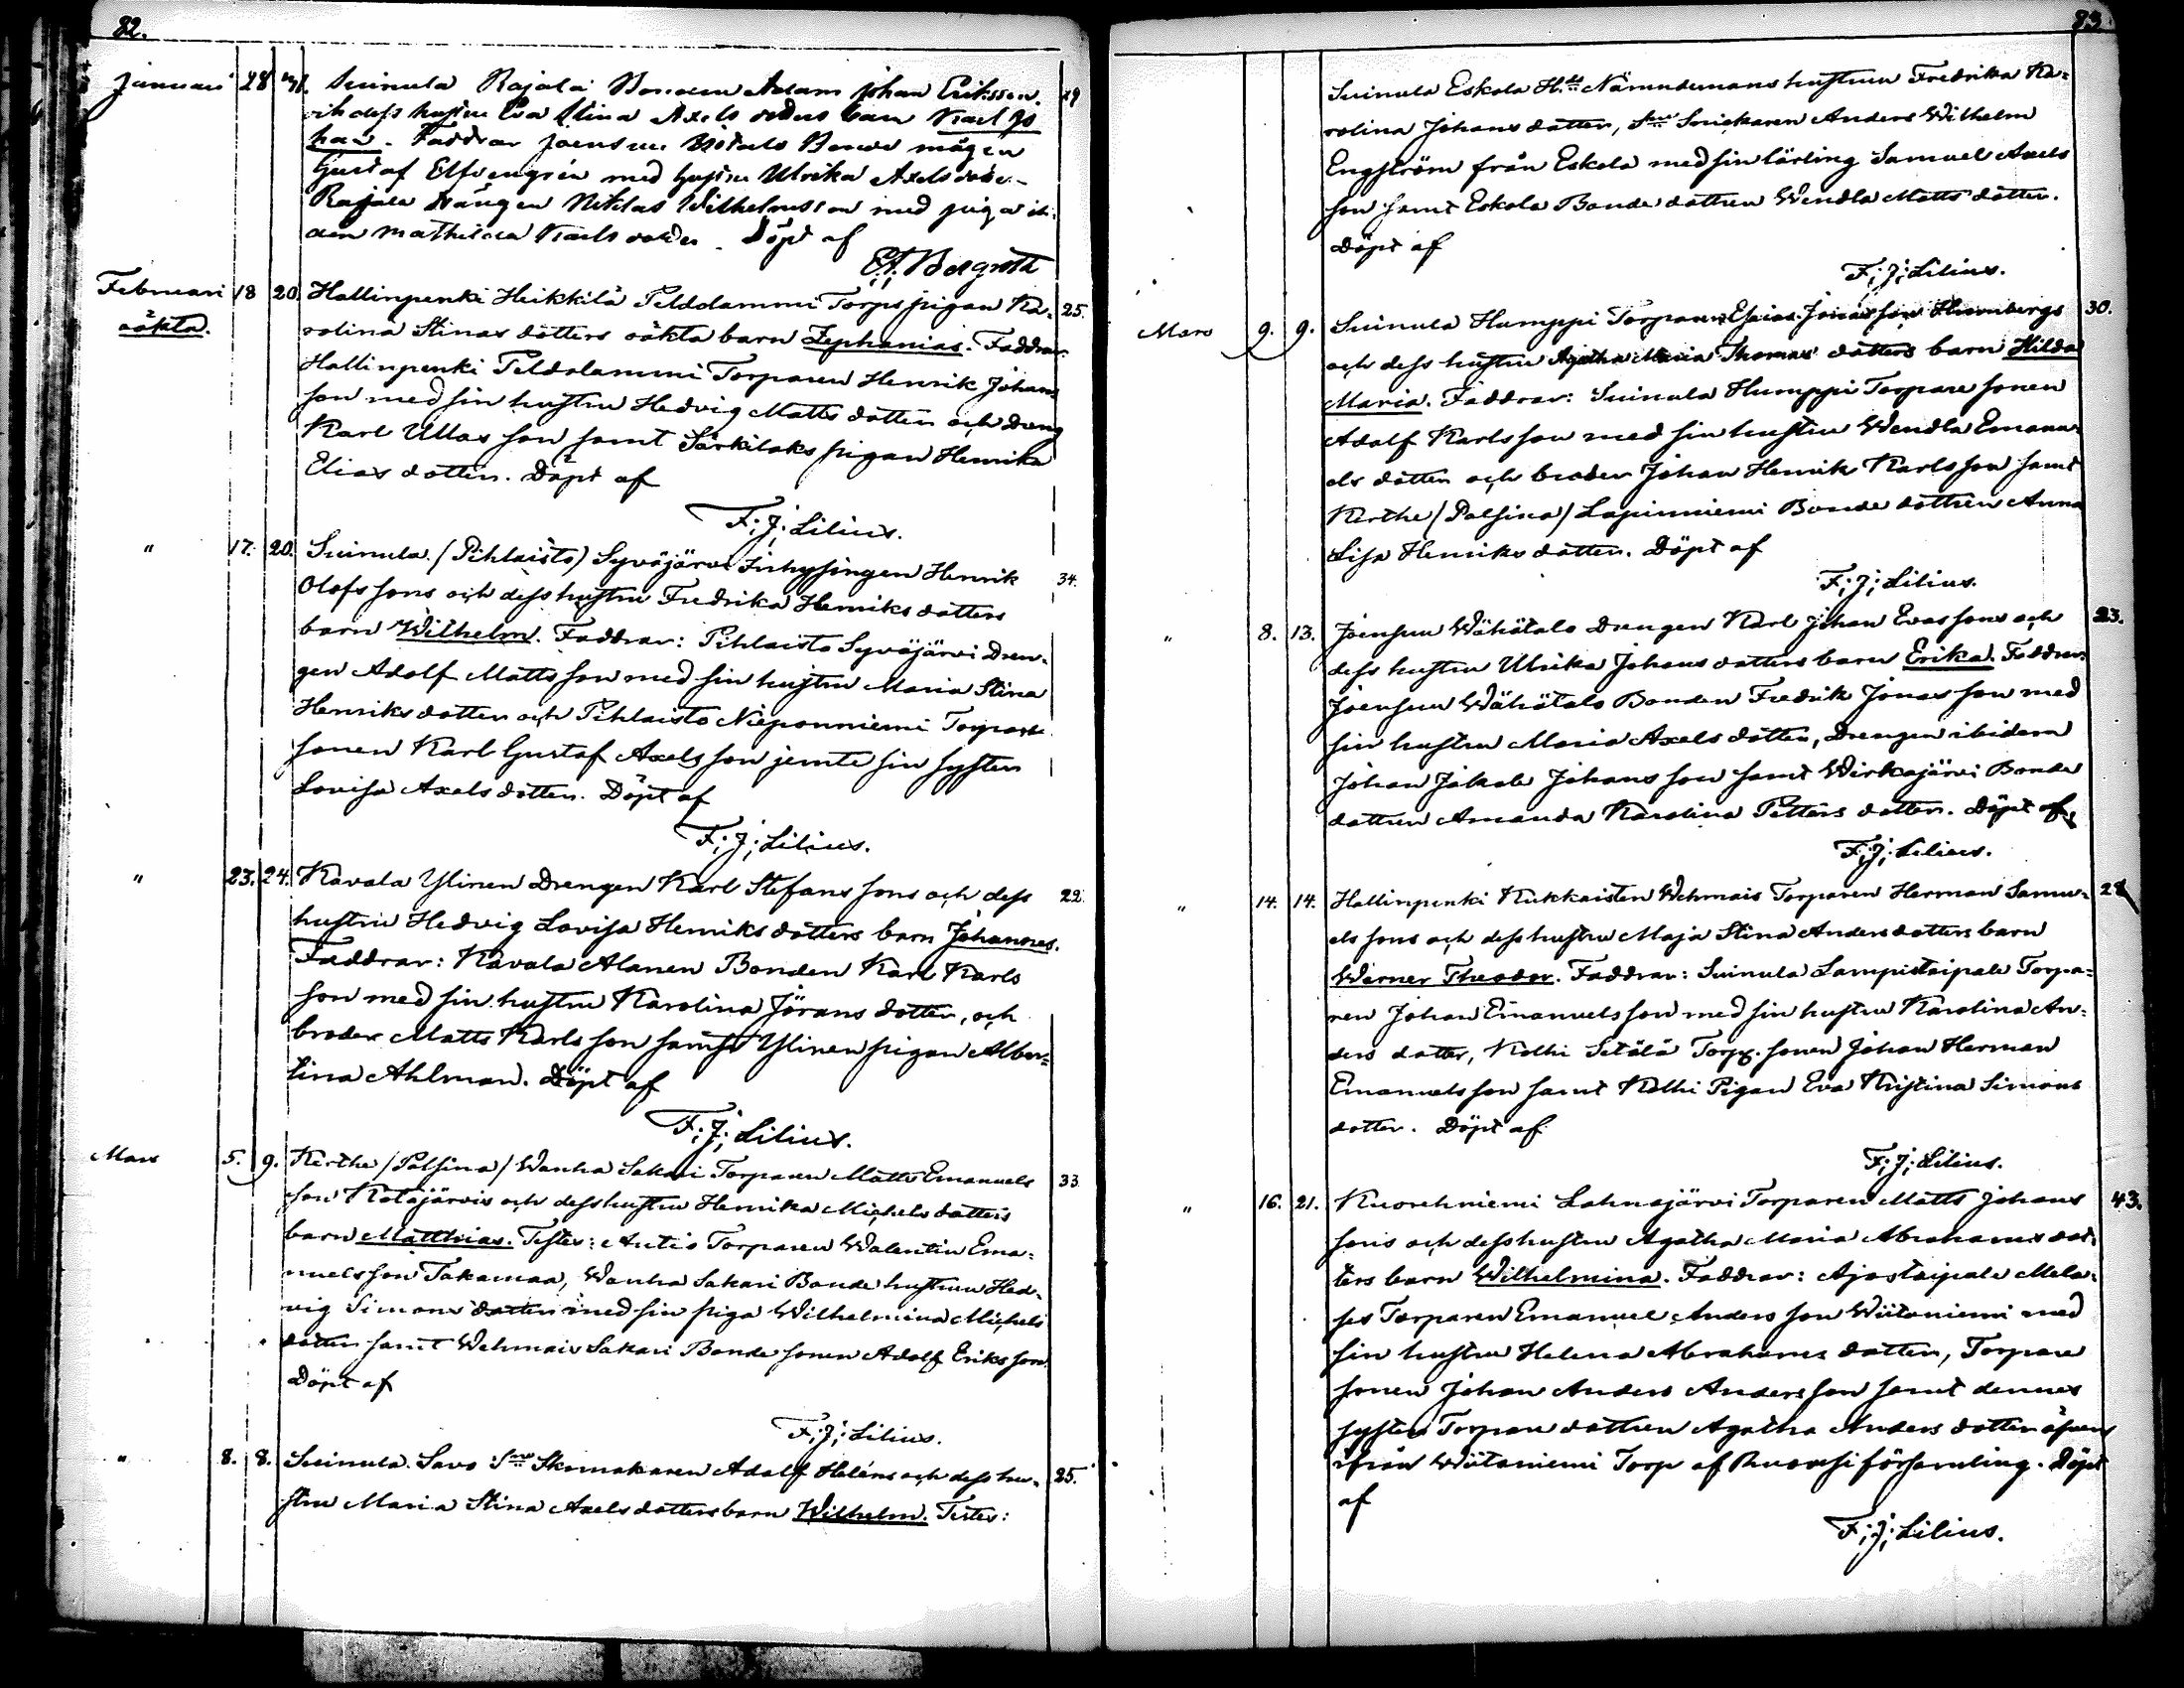 82.
Januari 28 31. Suinula Rajala Bonden Adam Johan Eriksson 29
och dess hustru Eva Stina Axels dotters barn Karl Jo
han. Faddrar Joensuu Bonde mågen
Gustaf Elfvengrén med hustru Ulrika Axels dotter
Rajala drängen Niklas Wilhelmsson med pigan ibi
dem Mathilda Karls dotter. Döpt af
Bergroth
Februari 18 20. Hallinpenki Heikkilä Peldolammi Torps pigan Ka- 25.
oäkta. rolina Stinas dotters oäkta barn Zephanias. Faddrar
Hallinpenki Peldolammi Torparen Henrik Johans
son med sin hustru Hedvig Matts dotter och dreng
Karl Ullas son samt Särkilaks pigan Henrika
Elias dotter. Döpt af
F; J; Lilius.
" 17. 20. Suinula (Pihlaisto) Syväjärvi Inhysingen Henrik 34.
Olofs sons och dess hustru Fredrika Henriks dotters
barn Wilhelm. Faddrar: Pihlaisto Syväjärvi Dren-
gen Adolf Matts son med sin hustru Maria Stina
Henriks dotter och Pihlaisto Nieponniemi Torpare
sonen Karl Gustaf Axels son jemte sin syster
Lovisa Axels dotter. Döpt af
F; J; Lilius.
" 23. 24. Kavala Ylinen Drengen Karl Stefans sons och dess 22.
hustru Hedvig Lovisa Henriks dotters barn Johannes.
Faddrar: Kavala Alanen Bonden Karl Karls
son med sin hustru Karolina Jörans dotter, och
broder Matts Karls son samt Ylinen pigan Alber-
tina Ahlman. Döpt af
F; J; Lilius.
Mars 5. 9. Kerthe /Palsina/ Wanha Sakari Torparen Matts Emanuels 33.
son Kotajärvis och dess hustru Henrika Michels dotters
barn Matthias. Testes: Antio Torparen Walentin Ema-
nuels son Takamaa, Wanha Sakari Bonde hustrun Hed-
vig Simons dotter med sin piga Wilhelmina Michels
dotter samt Wehmais Sakari Bonde sonen Adolf Eriks son
Döpt af
F; J; Lilius.
" 8. 8. Suinula Savo Skomakaren Adolf Heléns och dess hu- 25.
stru Maria Stina Axels dotters barn Wilhelm. Testes:
83
Suinula Eskola Nämndemans hustrun Fredrika Ka-
rolina Johans dotter, Snickaren Anders Wilhelm
Engström från Eskola med sin lärling Samuel Axels
son samt Eskola Bonde dottren Wendla Matts dotter.
Döpt af
F; J; Lilius.
Mars 9. 9. Suinula Humppi Torparen Esaias Jonas son Himbergs 30.
och dess hustru Agatha Maria Thomas dotters barn Hilda
Maria. Faddrar: Suinula Humppi Torpare sonen
Adolf Karls son med sin hustru Wendla Emanu-
els dotter och broder Johan Henrik Karls son samt
Kerthe /Palsina/ Lapinniemi Bonde dottren Anna
Lisa Henriks dotter. Döpt af
F; J; Lilius.
" 8. 13. Joensuu Wähätalo Drengen Karl Johan Evas sons och 23.
dess hustru Ulrika Johans dotters barn Erika. Faddrar:
Joensuu Wähätalo Bonden Fredrik Jonas son med
sin hustru Maria Axels dotter, Drengen ibidem
Johan Jakob Johans son samt Wirkajärvi Bonde
dottren Amanda Karolina Petters dotter. Döpt af
F; J; Lilius.
" 14. 14. Hallinpenki Kukkaisten Wehmais Torparen Herman Samu- 28
els sons och dess hustru Maja Stina Anders dotters barn
Werner Theodor. Faddrar: Suinula Lampistaipale Torpa-
ren Johan Emanuels son med sin hustru Karolina An-
ders dotter, Kolhi Setälä Torp. sonen Johan Herman
Emanuels son samt Kolhi Pigan Eva Kristina Simons
dotter. Döpt af
F; J; Lilius.
" 16. 21. Kuorehniemi Lahnajärvi Torparen Matts Johans 43.
sons och dess hustru Agatha Maria Abrahams dot-
ters barn Wilhelmina. Faddrar: Ajostaipale Mela-
ses Torparen Emanuel Anders son Wiitaniemi med
sin hustru Helena Abrahams dotter, Torpare
sonen Johan Anders Anders son samt dennes
syster Torpare dottren Agatha Anders dotter äfvens
ifrån Wiitaniemi Torp af Ruovesi församling. Döpt
af
F; J; Lilius.